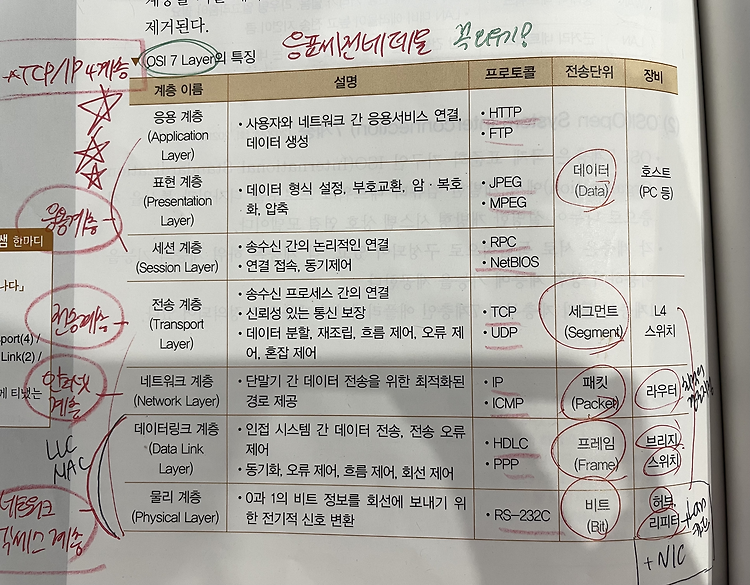 제거된다.
응표씨전네데물 꼭 외우기!
*TCP/IP 4계층
▼ OSI 7 Layer의 특징
계층 이름 설명 프로토콜 전송단위 장비
응용 계층
(Application
Layer)
• 사용자와 네트워크 간 응용서비스 연결,
데이터 생성
• HTTP
• FTP
표현 계층
(Presentation
Layer)
• 데이터 형식 설정, 부호교환, 암·복호
화, 압축
• JPEG
• MPEG
세션 계층
(Session Layer)
• 송수신 간의 논리적인 연결
• 연결 접속, 동기제어
• RPC
• NetBIOS
데이터
(Data)
호스트
(PC 등)
응용계층
쌤 한마디
나다」
전송 계층
(Transport
Layer)
• 송수신 프로세스 간의 연결
• 신뢰성 있는 통신 보장
• 데이터 분할, 재조립, 흐름 제어, 오류 제
어, 혼잡 제어
• TCP
• UDP
세그먼트
(Segment)
L4
스위치
전송계층
port(4) /
Link(2) /
네트워크 계층
(Network Layer)
• 단말기 간 데이터 전송을 위한 최적화된
경로 제공
• IP
• ICMP
패킷
(Packet)
라우터
인터넷
계층
에 티냈는
데이터링크 계층
(Data Link
Layer)
• 인접 시스템 간 데이터 전송, 전송 오류
제어
• 동기화, 오류 제어, 흐름 제어, 회선 제어
• HDLC
• PPP
프레임
(Frame)
브리지
스위치
LLC
MAC
물리 계층
(Physical Layer)
• 0과 1의 비트 정보를 회선에 보내기 위
한 전기적 신호 변환
• RS-232C
비트
(Bit)
허브
리피터
네트워크
액세스 계층
+ NIC